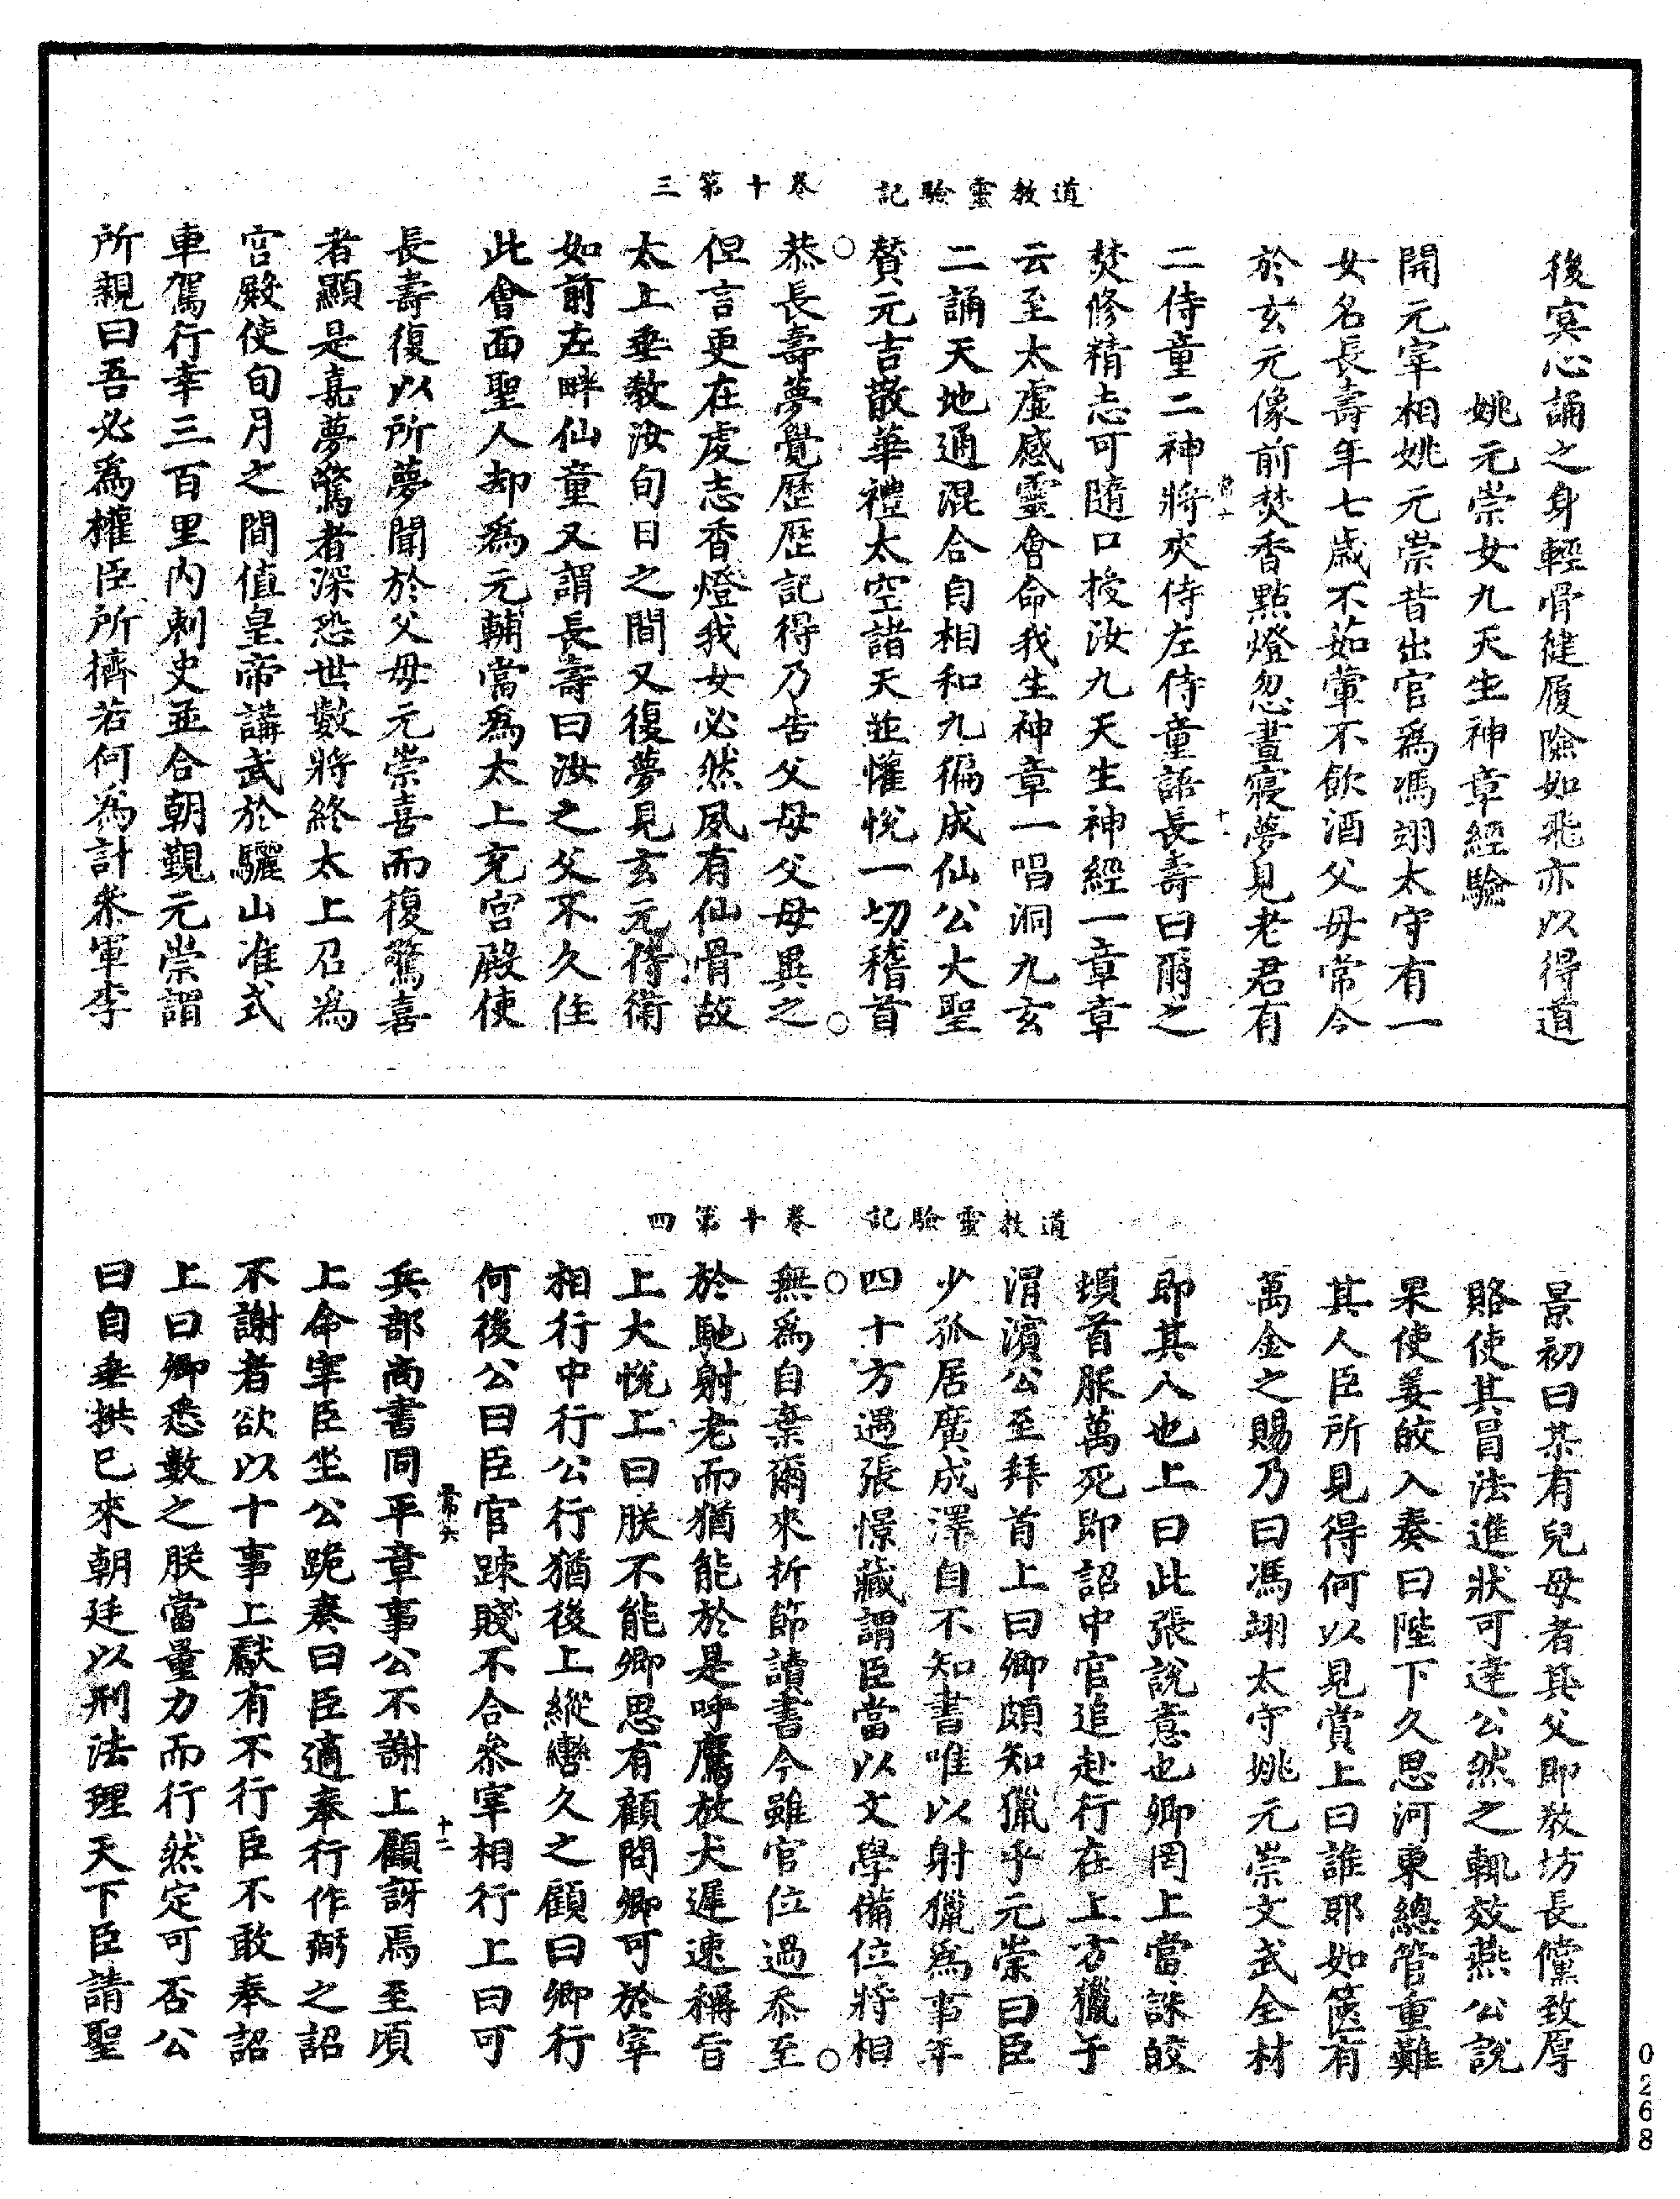 道教靈驗記　卷十第三
後冥心誦之身輕骨健履險如飛亦以得道
姚元崇女九天生神章經驗
開元宰相姚元崇昔出官為馮翊太守有一
女名長壽年七歲不茹葷不飲酒父母常令
於玄元像前焚香點燈忽晝寢夢見老君有
二侍童二神將夾侍左侍童語長壽曰爾之
焚修精志可隨口授汝九天生神經一章章
云至太虛感靈會命我生神章一唱洞九玄
二誦天地通混合自相和九徧成仙公大聖
贊元吉散華禮太空諸天並懽悅一切稽首
恭長壽夢覺歷歷記得乃告父母父母異之
但言更在虔志香燈我女必然夙有仙骨故
太上垂教汝旬日之間又復夢見玄元侍衛
如前左畔仙童又謂長壽曰汝之父不久住
此會面聖人却為元輔當為太上充宮殿使
長壽復以所夢聞於父母元崇喜而復驚喜
者顯是嘉夢驚者深恐世數將終太上召為
宮殿使旬月之間值皇帝講武於驪山准式
車駕行幸三百里內刺史並合朝覲元崇謂
所親曰吾必為權臣所擠若何為計參軍李
道教靈驗記　卷十第四
景初曰某有兒母者其父即教坊長儻致厚
賂使其冒法進狀可達公然之輒效燕公說
果使姜皎入奏曰陛下久思河東總管重難
其人臣所見得何以見賞上曰誰耶如愜有
萬金之賜乃曰馮翊太守姚元崇文武全材
即其人也上曰此張說意也卿罔上當誅皎
頓首服萬死即詔中官追赴行在上方獵于
渭濱公至拜首上曰卿頗知獵乎元崇曰臣
少孤居廣成澤自不知書唯以射獵為事年
四十方遇張憬藏謂臣當以文學備位將相
無為自棄爾來折節讀書今雖官位過忝至
於馳射老而猶能於是呼鷹放犬遲速稱旨
上大悅上曰朕不能卿思有顧問卿可於宰
相行中行公行猶後上縱轡久之顧曰卿行
何後公曰臣官踈賤不合參宰相行上曰可
兵部尚書同平章事公不謝上顧訝焉至頃
上命宰臣坐公跪奏曰臣適奉行作弼之詔
不謝者欲以十事上獻有不行臣不敢奉詔
上曰卿悉數之朕當量力而行然定可否公
曰自垂拱已來朝廷以刑法理天下臣請聖
十一
十二
0268